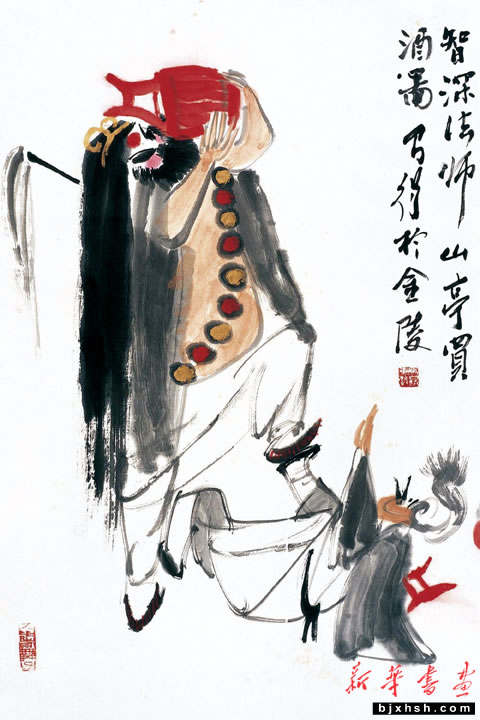 智深法师山亭買
酒啚 马得於金陵
新華書畫
bjxhsh.com